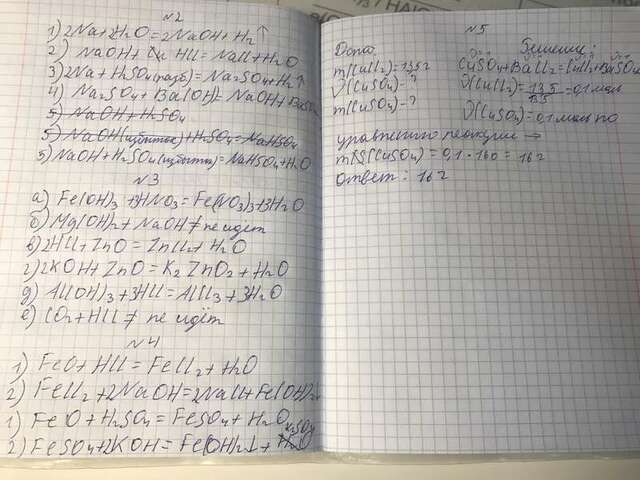 №2
1) 2Na+2H₂O=2NaOH+H₂↑
2) NaOH+ HCl=NaCl+H₂O
3) 2Na+H₂SO₄(разб)=Na₂SO₄+H₂↑
4) Na₂SO₄+Ba(OH)=NaOH+BaSO₄
5) NaOH+H₂SO₄
5) NaOH(избыток)+H₂SO₄=NaHSO₄
5) NaOH+H₂SO₄(избыток)=NaHSO₄+H₂O
№3
а) Fe(OH)₃+3HNO₃=Fe(NO₃)₃+3H₂O
б) Mg(OH)₂+NaOH≠ не идёт
в) 2HCl+ZnO=ZnCl₂+H₂O
г) 2KOH+ZnO=K₂ZnO₂+H₂O
д) Al(OH)₃+3HCl=AlCl₃+3H₂O
е) CO₂+HCl≠ не идёт
№4
1) FeO+HCl=FeCl₂+H₂O
2) FeCl₂+2NaOH=2NaCl+Fe(OH)₂
1) FeO+H₂SO₄=FeSO₄+H₂O
2) FeSO₄+2KOH=Fe(OH)₂↓+K₂SO₄
№5
Дано
Решение:
m(CuCl₂)=13,5г
CuSO₄+BaCl₂=CuCl₂+BaSO₄
ν(CuSO₄)=?
ν(CuCl₂)=13,5/135=0,1моль
m(CuSO₄)=?
ν(CuSO₄)=0,1моль по
уравнению реакции →
m(CuSO₄)=0,1·160=16г
Ответ: 16г